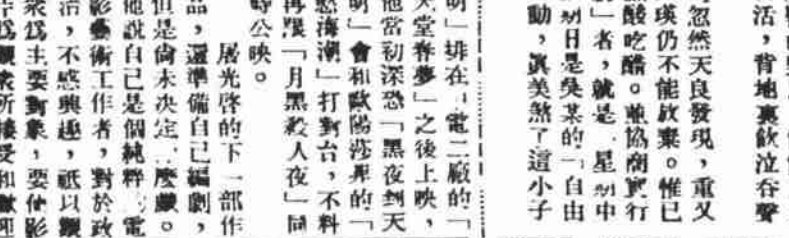 活，背地裏飲泣吞聲
忽然天良發現，重又
瑛仍不能放棄。惟已
酸吃醋。並協商實行
」者，就是「星期中
期日是吳某的「自由
動，眞美煞了這小子
明」排在「電二廠的「
天堂春夢」之後上映，
他當初深恐「黑夜到天
明」會和歐陽莎菲的「
怒海潮」打對台，不料
再跟「月黑殺人夜」同
時公映。
屠光啓的下一部作
品，還準備自己編劇，
但是尚未決定
他說自己是個純粹「電
影藝術工作者，對於政
治，不感興趣，祇以觀
衆爲主要對象，要使影
片爲觀衆所接受和歡迎